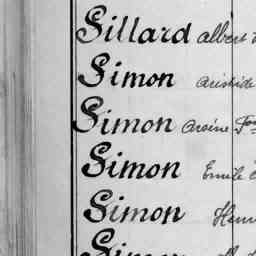 Sillard Albert
Simon Aristide
Simon Arsène
Simon Emile
Simon Henri
Simon